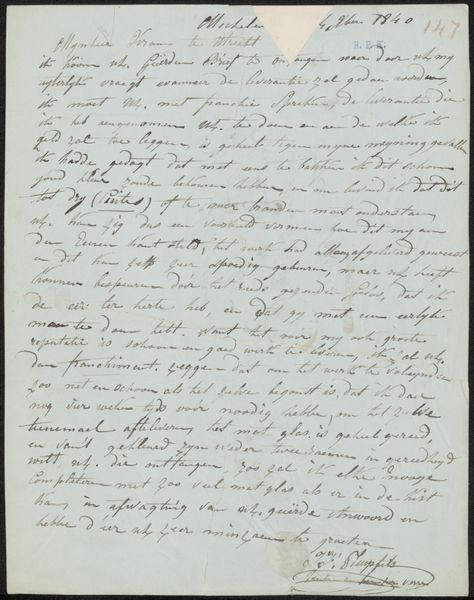 Mechelen 4 Xber 1840
147
R.P.K.
Mynheer Kramm te Utrecht
ik koom uw geëerden brief te ontvangen waer door uw my
vraegt wanneer de leverantie zal gedaen worden,
ik moet uw met franchise spreken, de leverantie die
ik heb aengenomen uw te doen en aen de welke ik
geld zal toe leggen, is geheel tegen myne meyning gevallen
ik hadde gedagt dat met eens te bakken ik dit schoon
kleur zoude bekomen hebben, en nu bevind ik dat dit
tot dry (cuites) of te over branden moet onderstaen,
uw kan zig dus een voorbeeld vormen hoe dit my aen
den houd, het werk had allang afgelevert geweest
en dit kan zelfs zeer spoedig gebeuren, maer uw heeft
konnen bespeuren door het reeds gezonden, dat ik
de eer ter herte heb, en dat gy met een eerlyke
man te doen hebt. Want het voor my ook groote
reputatie is schoon en goed werk te leveren, ik zal uw
dan franchement zeggen dat om het werk te voleynden
zoo net en schoon als het zelve begonst is, dat ik daer
nog vier weken tyds voor noodig hebbe, om het zelve
teenemael afteleveren, het mat glas is geheel gereed,
en van't gekleurd zyn weder twee raemen in gereedheyd
wilt uw die ontfangen, zoo zal ik elke
completeren met zoo veel mat glas als er in de kist
kan, in afwagting van uw geëerde antwoord en
hebbe d'eer uw zeer minzaem te groeten